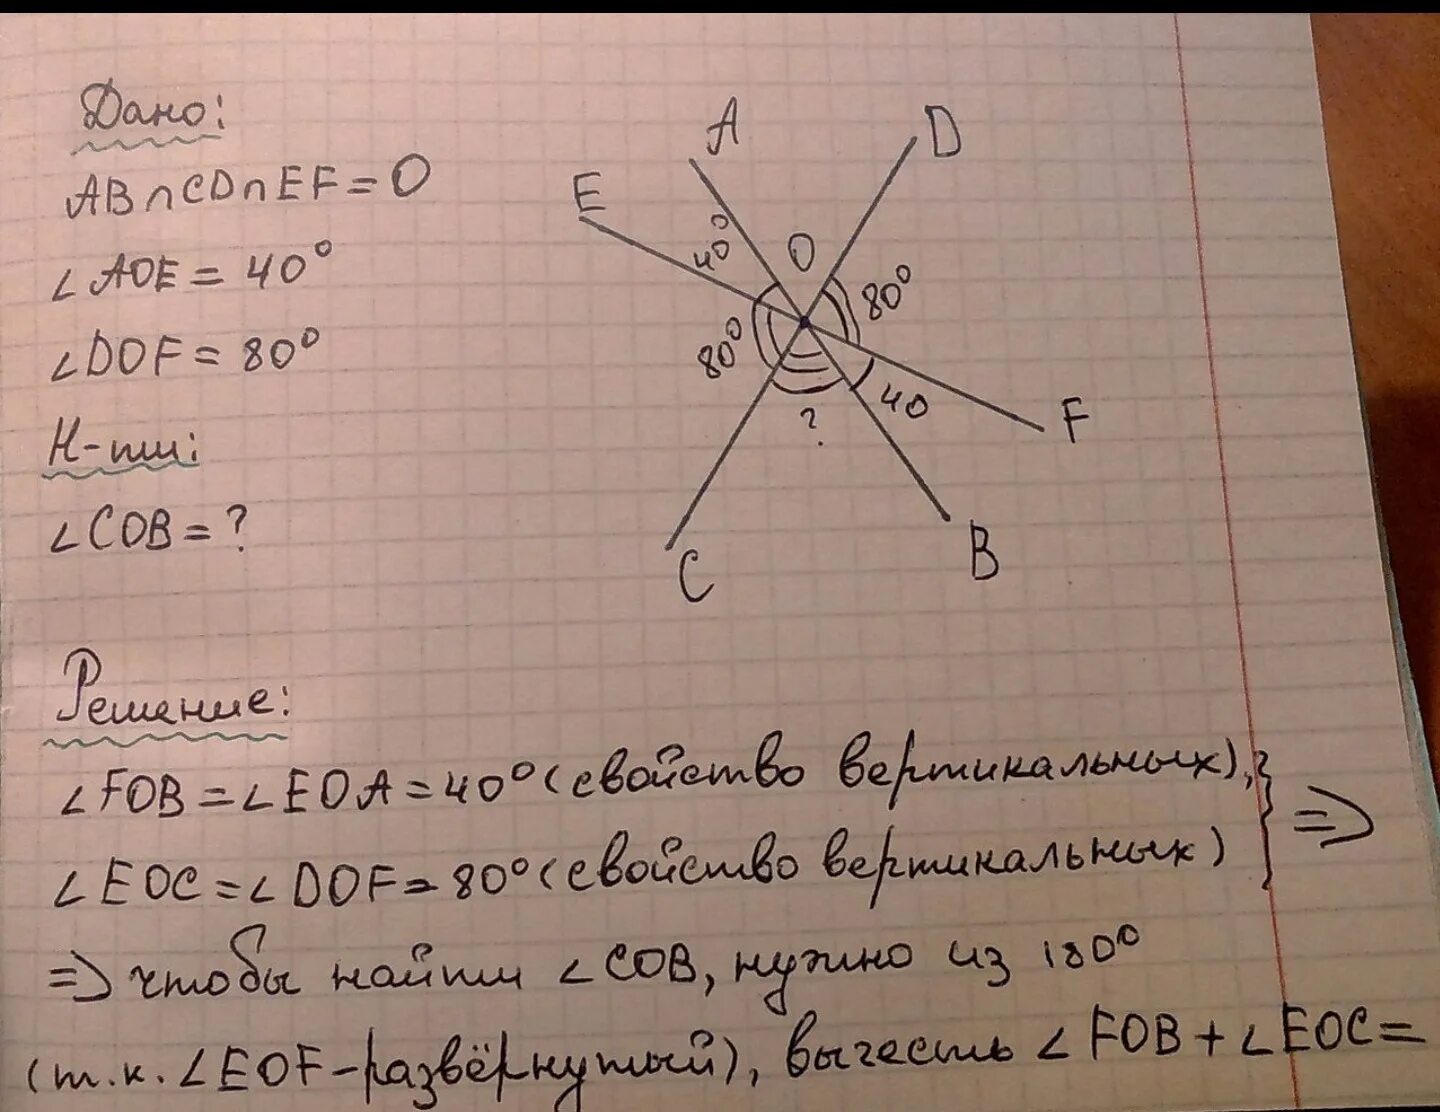 Дано:
AB∩CD∩EF=O
∠AOE=40°
∠DOF=80°
Н-ти:
∠COB=?
A
D
E
40°
O
80°
80°
40
?
F
C
B
Решение:
∠FOB=∠EOA=40°(свойство вертикальных),
∠EOC=∠DOF=80°(свойство вертикальных)
} =>
=> чтобы найти ∠COB, нужно из 180°
(т.к. ∠EOF-развёрнутый), вычесть ∠FOB+∠EOC=